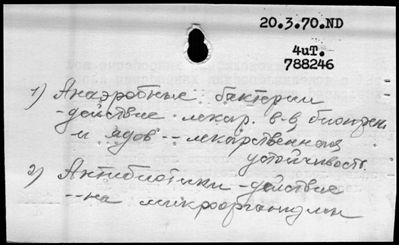 20.3.70.ND
4иТ.
788246
1) Анаэробные бактерии
-действие лекар. в-в, биоген.
- и ядов -- лекарственная
устойчивость
2) Антибиотики - действие
--на микроорганизмы